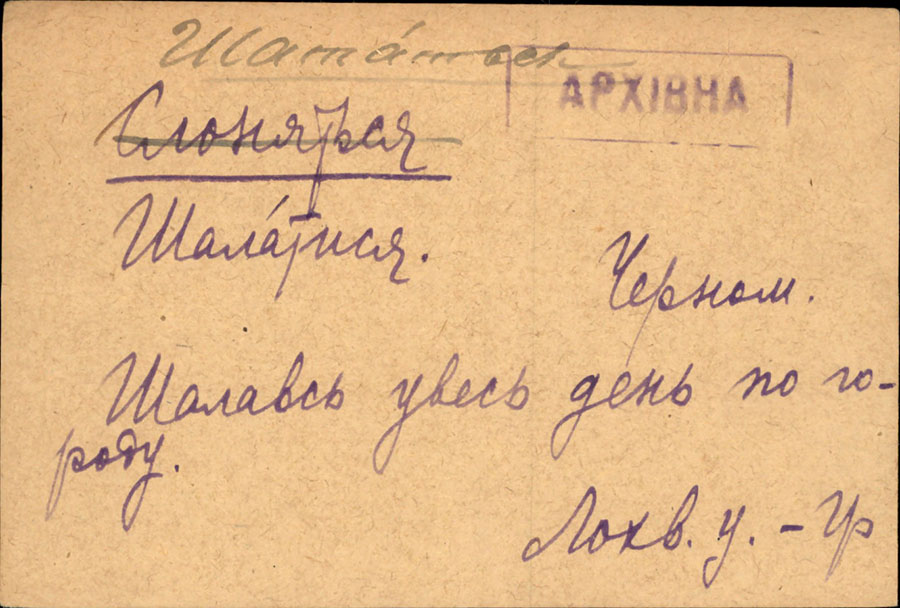 Шата́ться
АРХІВНА
Слоняться
Шала́тися.
Черном.
Шалавсь увесь день по го-
роду.
Лохв. у. - Гр